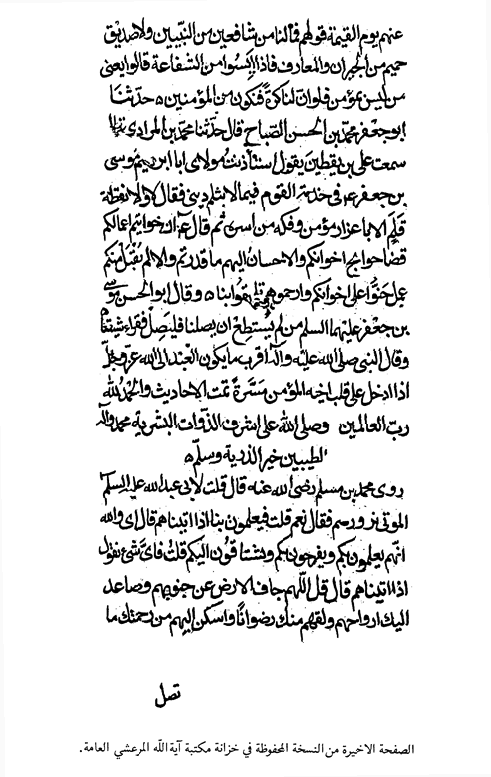 عنهم يوم القيمة قولهم فمالنا من شافعين من النبيين ولا صديق
حميم من الجيران والمعارف فاذا ايسوا من الشفاعة قالوا يعنى
من ليس بمؤمن فلو ان لنا كرة فنكون من المؤمنين حدثنا
ابو جعفر محمد بن الحسن الصباح قال حدثنا محمد بن المرادى قال
سمعت على بن يقطين يقول استأذنت مولاى ابا ابرهيم موسى
بن جعفر ع فى خدمة القوم فيما لا يثلم دينى فقال لا ولا نقطة
قلم الا باعزاز مؤمن وفكه من اسره ثم قال ع ان خواتيم اعمالكم
قضاء حوائج اخوانكم والاحسان اليهم ما قدرتم والا لم يقبل منكم
عمل حنوا على اخوانكم وارحموهم تلحقوا بنا وقال ابو الحسن موسى
بن جعفر عليهما السلم من لم يستطع ان يصلنا فليصل فقراء شيعتنا
وقال النبى صلى الله عليه وآله اقرب ما يكون العبد الى الله عز وجل
اذا ادخل على قلب اخيه المؤمن مسرة تمت الاحاديث والحمد لله
رب العالمين وصلى الله على اشرف الذوات البشرية محمد وآله
الطيبين خير الذرية وسلم
روى محمد بن مسلم رضى الله عنه قال قلت لابى عبد الله عليه السلم
الموتى نزورهم فقال نعم قلت فيعلمون بنا اذا اتيناهم قال اى والله
انهم يعلمون بكم ويفرحون بكم ويشتاقون اليكم قلت فاى شئ نقول
اذا اتيناهم قال قل اللهم جاف الارض عن جنوبهم وصاعد
اليك ارواحهم ولقهم منك رضوانا واسكن اليهم من رحمتك ما
تصل
الصفحة الاخيرة من النسخة المحفوظة في خزانة مكتبة آية الله المرعشي العامة.